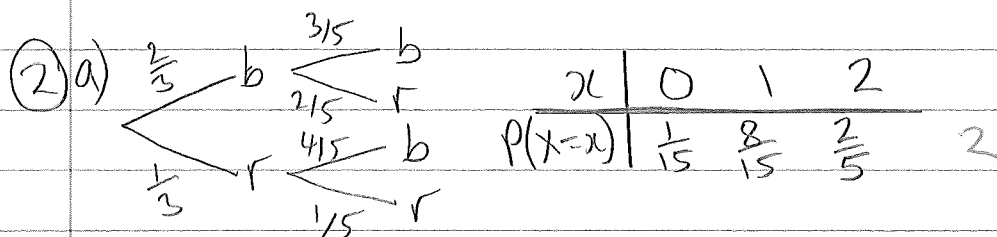 2 a) 2/3 b 3/5 b
2/5 r
1/3 r 4/5 b
1/5 r
x 0 1 2
P(X=x) 1/15 8/15 2/5 2